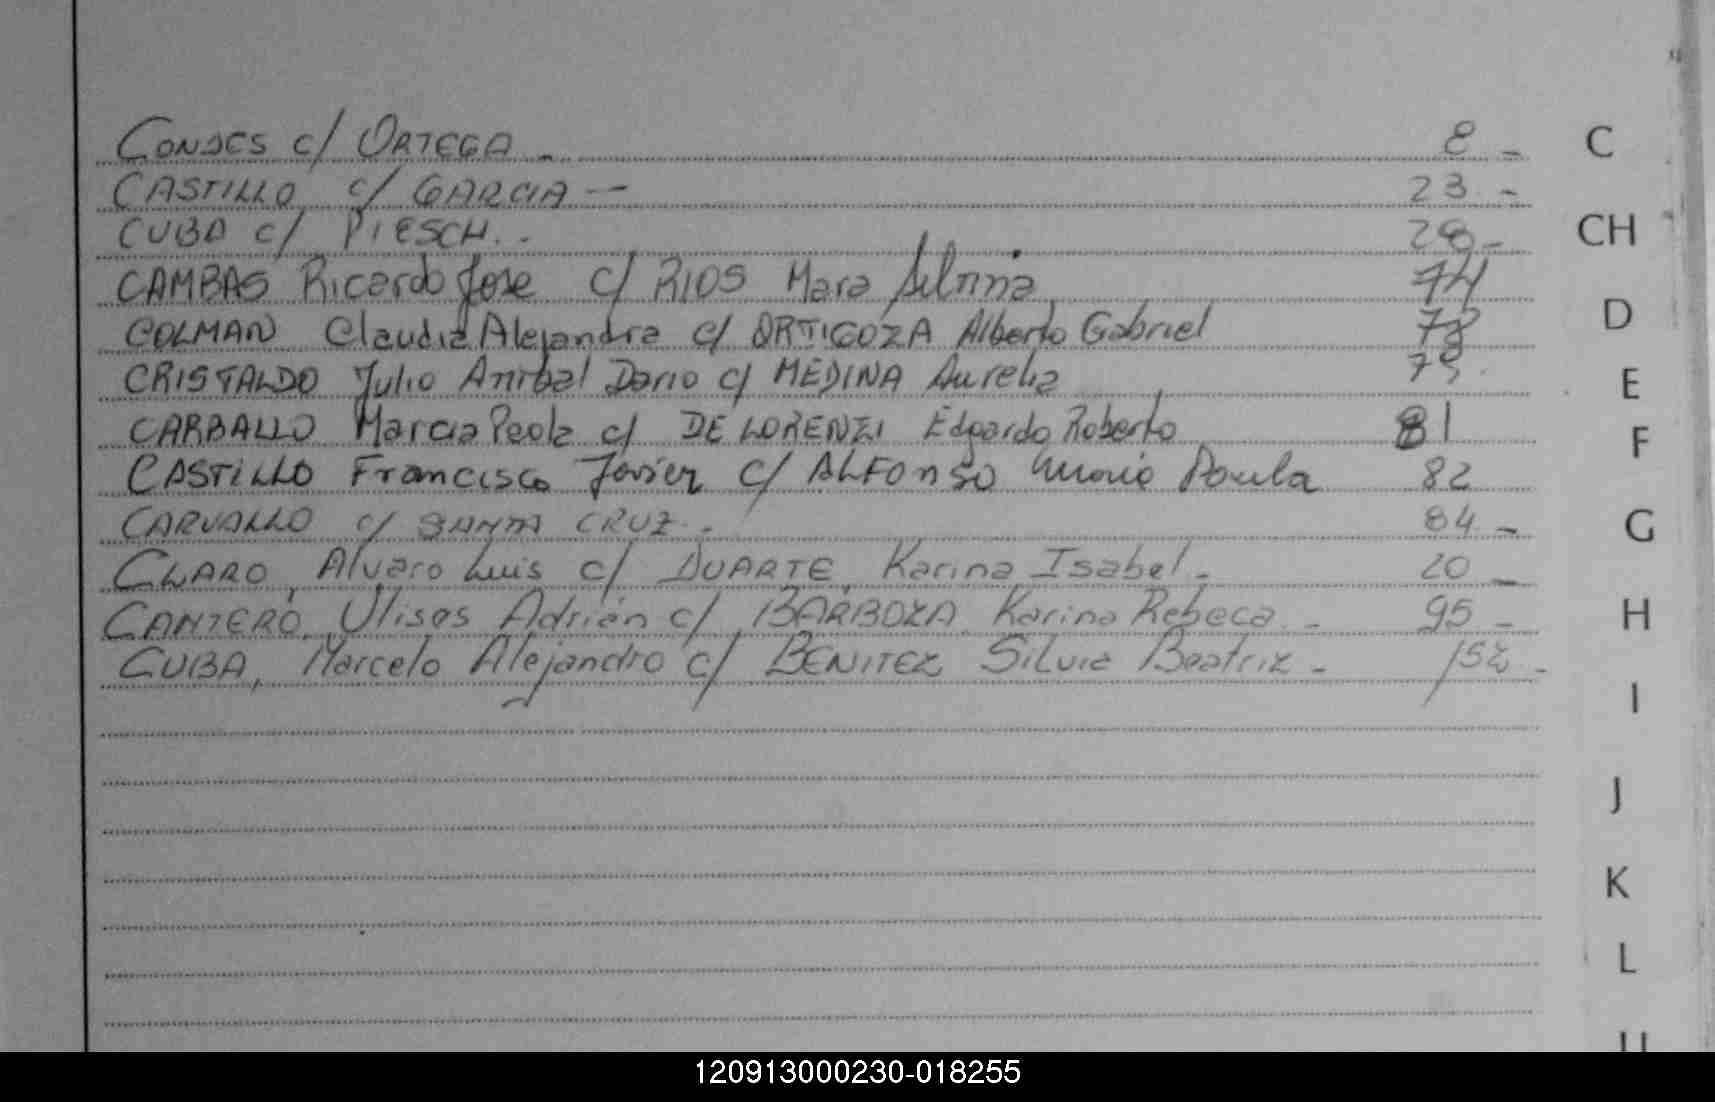 CONDES c/ ORTEGA - 8 -
CASTILLO c/ GARCIA - 23 -
CUBA c/ PIESCH. - 28 -
CAMBAS Ricardo Jose c/ RIOS Mara Silvina 74
COLMAN Claudia Alejandra c/ ORTIGOZA Alberto Gabriel
CRISTALDO Julio Anibal Dario c/ MEDINA Aurelia
CARBALLO Marcia Paola c/ DE LORENZI Edgardo Roberto 81
CASTILLO Francisco Javier c/ ALFONSO Maria Paula 82
CARVALLO c/ SANTA CRUZ - 84 -
CLARO, Alvaro Luis c/ DUARTE, Karina Isabel - 20 -
CANTERO, Ulises Adrián c/ BARBOZA Karina Rebeca - 95 -
CUBA, Marcelo Alejandro c/ BENITEZ Silvia Beatriz - 152 -
C
CH
D
E
F
G
H
I
J
K
L
120913000230-018255